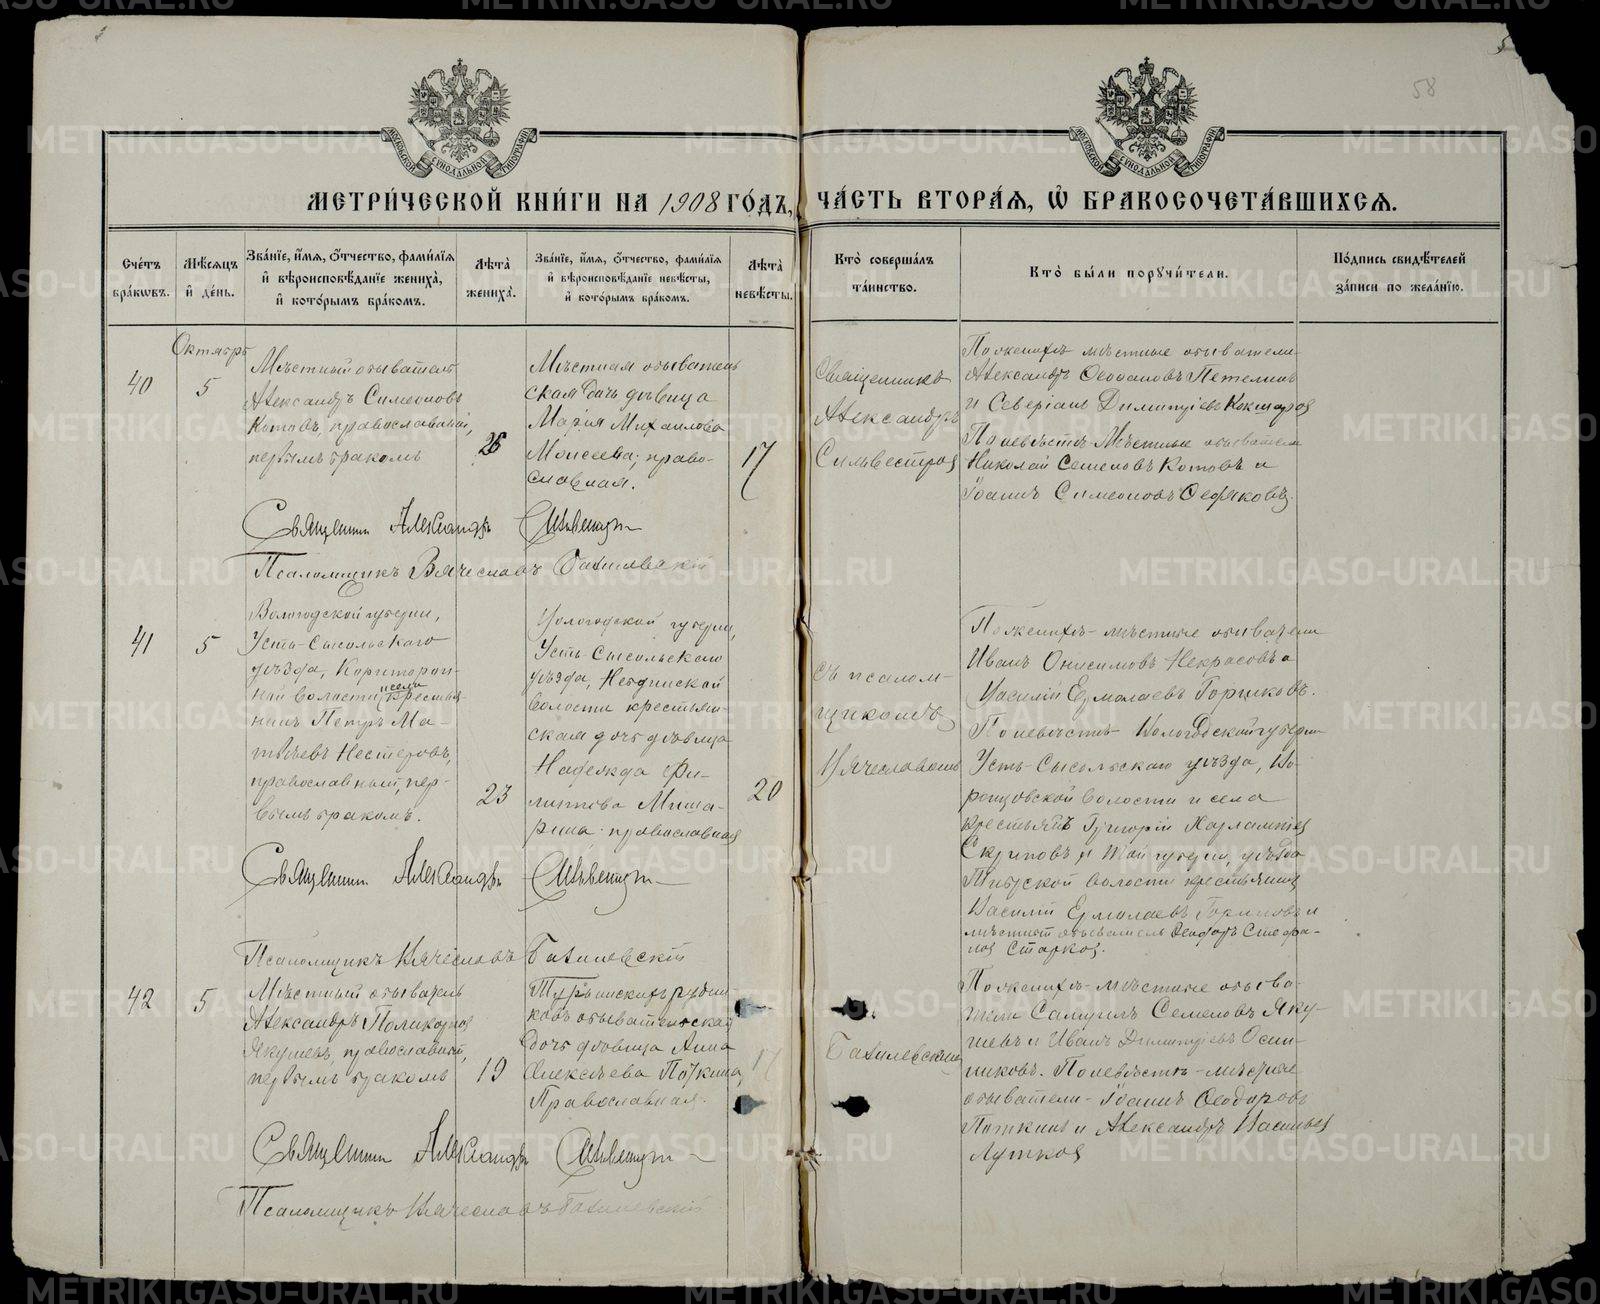 58
МОСКОВСКОЙ СѴНОДАЛЬНОЙ ТИПОГРАФІИ
МОСКОВСКОЙ СѴНОДАЛЬНОЙ ТИПОГРАФІИ
МЕТРИ́ЧЕСКОЙ КНИ́ГИ НА 1908 ГО́ДЪ, ЧА́СТЬ ВТОРА́Ѧ, Ѡ҆ БРАКОСОЧЕТА́ВШИХСѦ.
Сче́тъ бра́кѡвъ.
Мѣ́сѧцъ и҆ де́нь.
Зва́нїе, и҆́мѧ, ѻ҆́тчество, фами́лїѧ и҆ вѣроисповѣ́данїе жениха̀, и҆ кото́рымъ бра́комъ.
Лѣ́та̀ жениха̀.
Зва́нїе, и҆́мѧ, ѻ҆́тчество, фами́лїѧ и҆ вѣроисповѣ́данїе невѣ́сты, и҆ кото́рымъ бра́комъ.
Лѣ́та̀ невѣ́сты.
Кто̀ соверша́лъ та́инство.
Кто̀ бы́ли порꙋчи́тели.
По́дпись свидѣ́телей за́писи по жела́нїю.
Октябрь
40
5
Мѣстный обыватель
Александръ Симеоновъ
Котовъ, православный,
первымъ бракомъ
25
Мѣстная обыватель
ская дочь дѣвица
Марія Михаилова
Моисеева, право-
славная.
17
Священникъ
Александръ
Сильвестровъ
По женихѣ мѣстные обыватели
Александръ Феофановъ Петелинъ
и Северіанъ Димитріевъ Кокшаровъ
По невѣстѣ Мѣстные обыватели
Николай Семеновъ Котовъ и
Іоаннъ Симеоновъ
Священникъ Александръ Сильвестровъ
Псаломщикъ Вячеславъ Базилевскій
41
5
Вологодской губерніи,
Усть-Сысольскаго
уѣзда,
ной волости и села крестья-
нинъ Петръ Ма-
твѣевъ Нестеровъ,
православный, пер-
вымъ бракомъ.
23
Вологодской губерніи,
Усть-Сысольскаго
уѣзда, Небдинской
волости крестьян-
ская дочь дѣвица
Надежда Фи-
липпова Миша-
рина православная
20
съ псалом-
щикомъ
Вячеславомъ
По женихѣ - мѣстные обыватели
Иванъ Онисимовъ Некрасовъ и
Василій Ермолаевъ Горчиковъ.
По невѣстѣ - Вологодской губерніи
Усть-Сысольскаго уѣзда,
волости и села
крестьянъ Григорій Харлампіев
и той губерніи, уѣзда
волости крестьянинъ
Василій Ермолаевъ
мѣстный обыватель Феодоръ Стефа-
новъ Старковъ.
Священникъ Александръ Сильвестровъ
Псаломщикъ Вячеславъ Базилевскій
42
5
Мѣстный обыватель
Александръ Поликарповъ
Якушевъ, православный,
первымъ бракомъ
19
Турьинскихъ рудни
ковъ обывательская
дочь дѣвица Анна
Алексѣева Поткина,
Православная.
17
Базилевскимъ
По женихѣ - мѣстные обыва-
тели Самуилъ Семеновъ Яку-
шевъ и Иванъ Димитріевъ Осин-
никовъ. По невѣстѣ - мѣстные
обыватели - Іоаннъ Феодоровъ
Поткинъ и Александръ Васильевъ
Лутковъ
Священникъ Александръ Сильвестровъ
Псаломщикъ Вячеславъ Базилевскій
METRIKI.GASO-URAL.RU